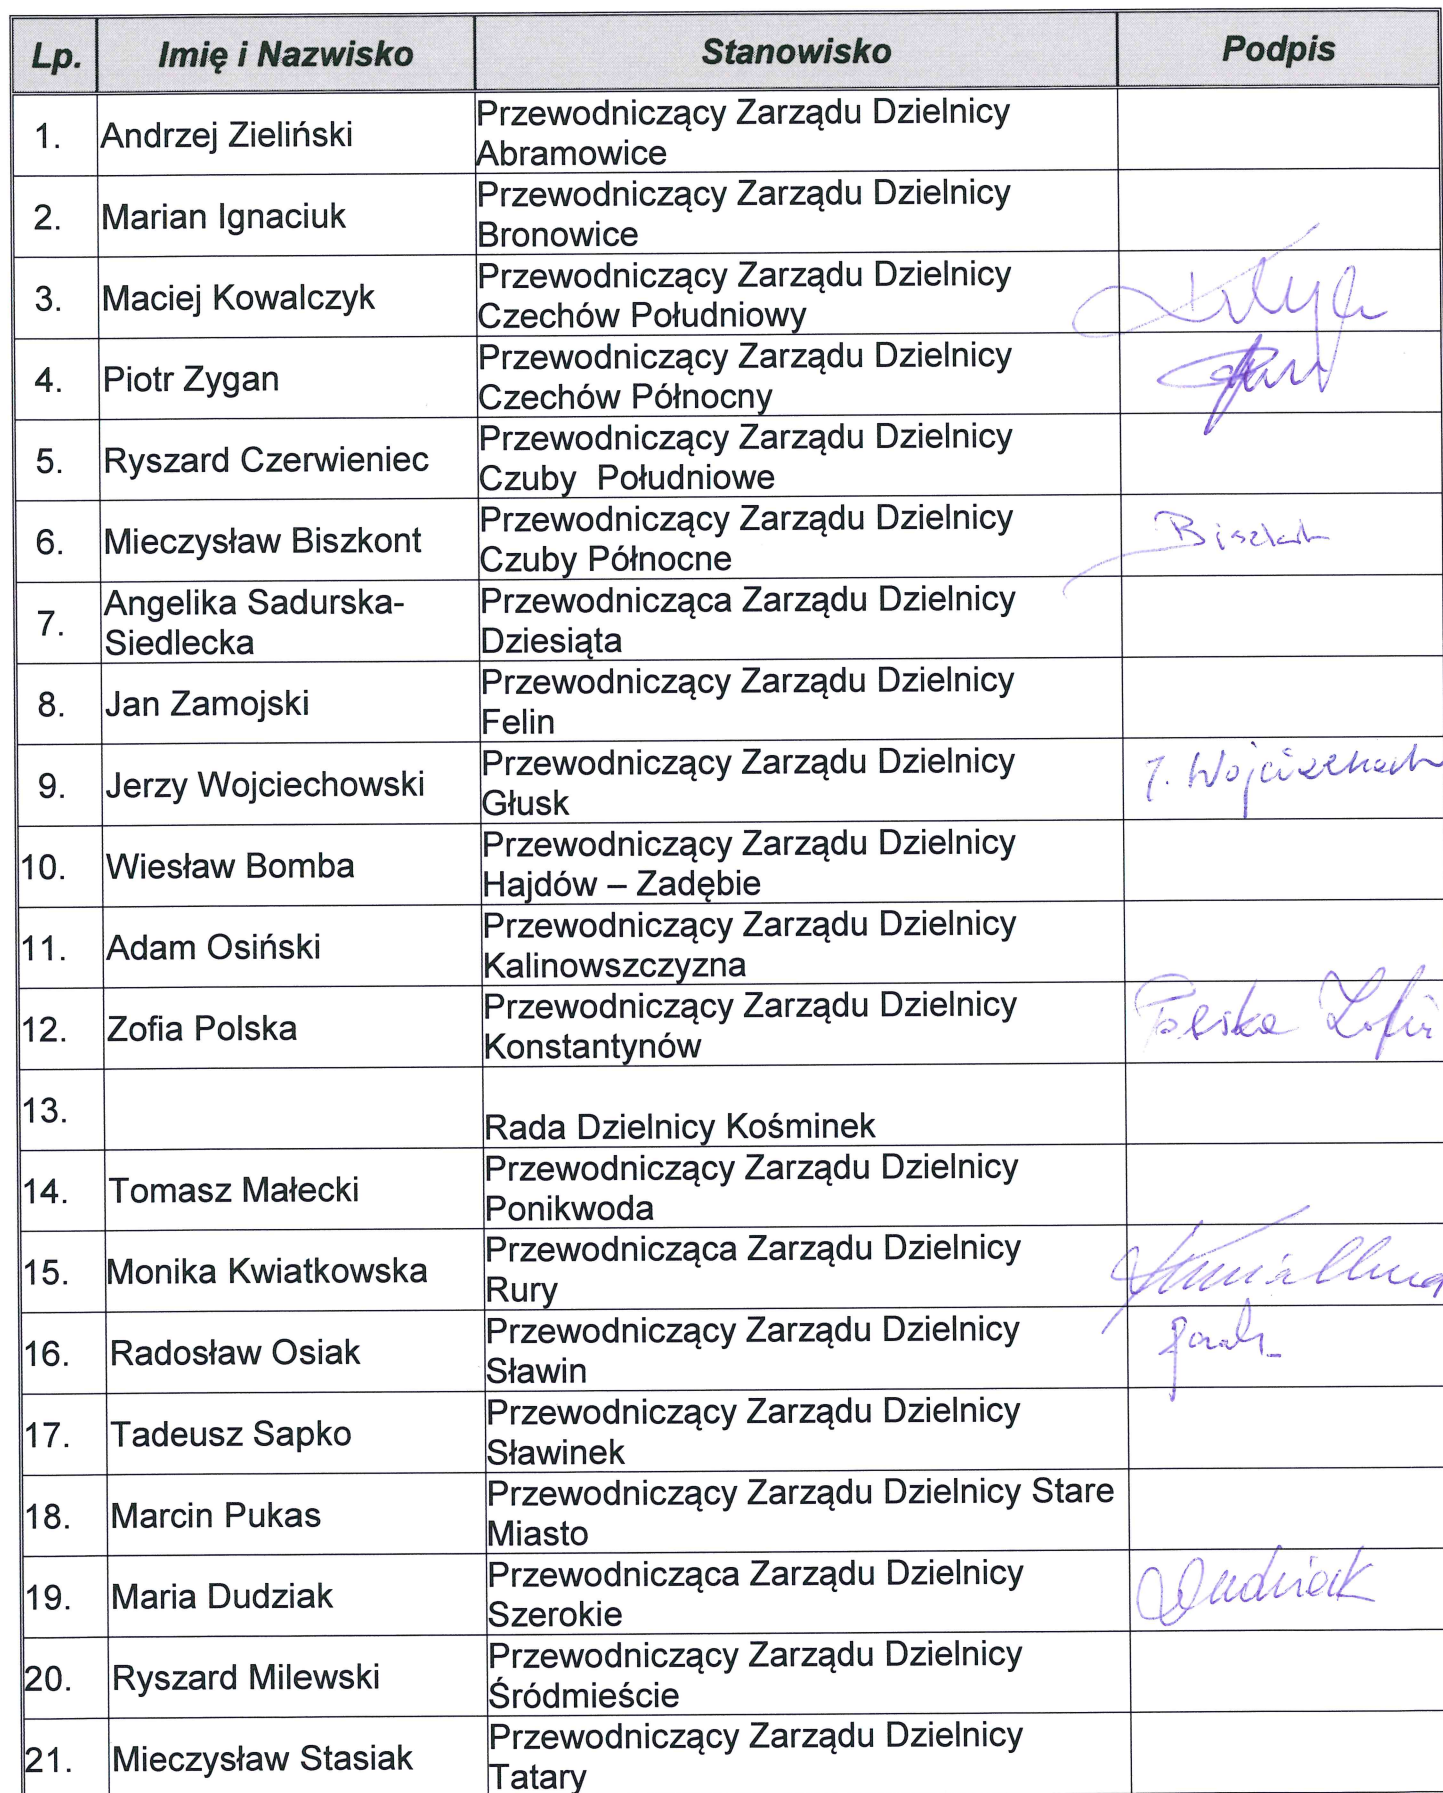 Lp. Imię i Nazwisko Stanowisko Podpis
1. Andrzej Zieliński Przewodniczący Zarządu Dzielnicy
Abramowice
2. Marian Ignaciuk Przewodniczący Zarządu Dzielnicy
Bronowice
3. Maciej Kowalczyk Przewodniczący Zarządu Dzielnicy
Czechów Południowy
4. Piotr Zygan Przewodniczący Zarządu Dzielnicy
Czechów Północny
5. Ryszard Czerwieniec Przewodniczący Zarządu Dzielnicy
Czuby Południowe
6. Mieczysław Biszkont Przewodniczący Zarządu Dzielnicy
Czuby Północne
7. Angelika Sadurska- Przewodnicząca Zarządu Dzielnicy
Siedlecka Dziesiąta
8. Jan Zamojski Przewodniczący Zarządu Dzielnicy
Felin
9. Jerzy Wojciechowski Przewodniczący Zarządu Dzielnicy
Głusk
10. Wiesław Bomba Przewodniczący Zarządu Dzielnicy
Hajdów – Zadębie
11. Adam Osiński Przewodniczący Zarządu Dzielnicy
Kalinowszczyzna
12. Zofia Polska Przewodniczący Zarządu Dzielnicy Polska Zofia
Konstantynów
13.
Rada Dzielnicy Kośminek
14. Tomasz Małecki Przewodniczący Zarządu Dzielnicy
Ponikwoda
15. Monika Kwiatkowska Przewodnicząca Zarządu Dzielnicy
Rury
16. Radosław Osiak Przewodniczący Zarządu Dzielnicy
Sławin
17. Tadeusz Sapko Przewodniczący Zarządu Dzielnicy
Sławinek
18. Marcin Pukas Przewodniczący Zarządu Dzielnicy Stare
Miasto
19. Maria Dudziak Przewodnicząca Zarządu Dzielnicy Dudziak
Szerokie
20. Ryszard Milewski Przewodniczący Zarządu Dzielnicy
Śródmieście
21. Mieczysław Stasiak Przewodniczący Zarządu Dzielnicy
Tatary